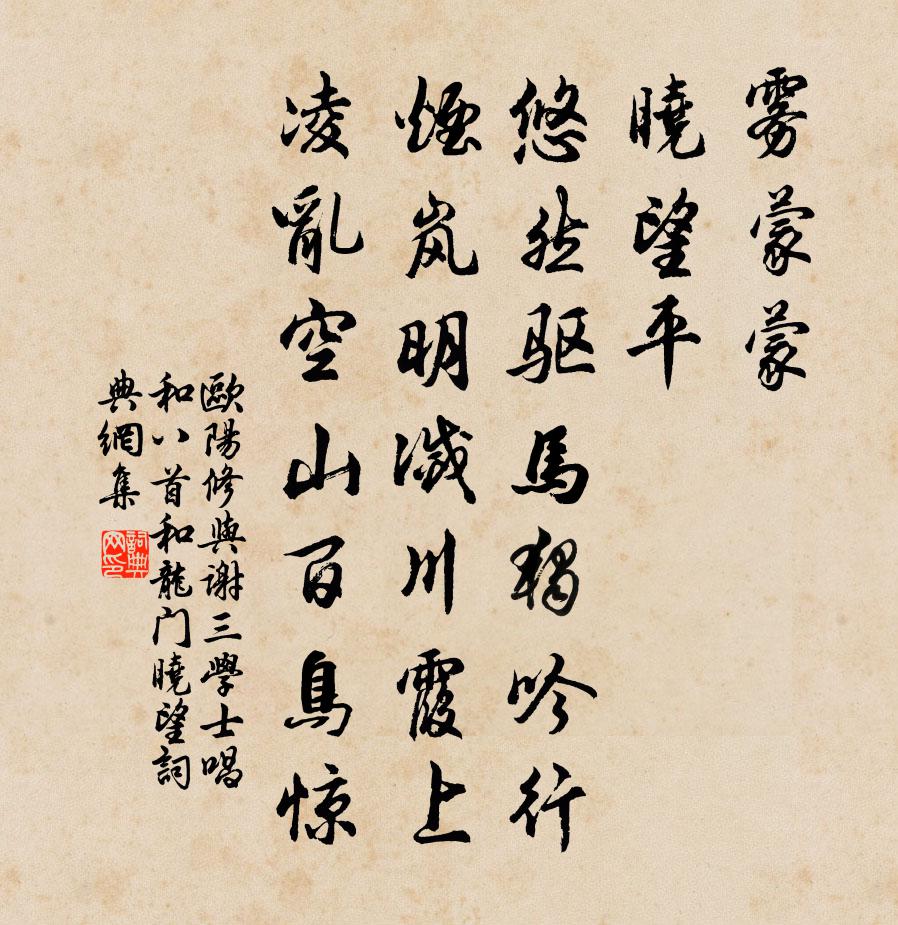 雾蒙蒙
曉望平
悠然驱馬獨吟行
煙岚明滅川霞上
凌亂空山百鳥惊
歐陽修與谢三學士唱
和八首和龍门曉望詞
典網集
詞典網印